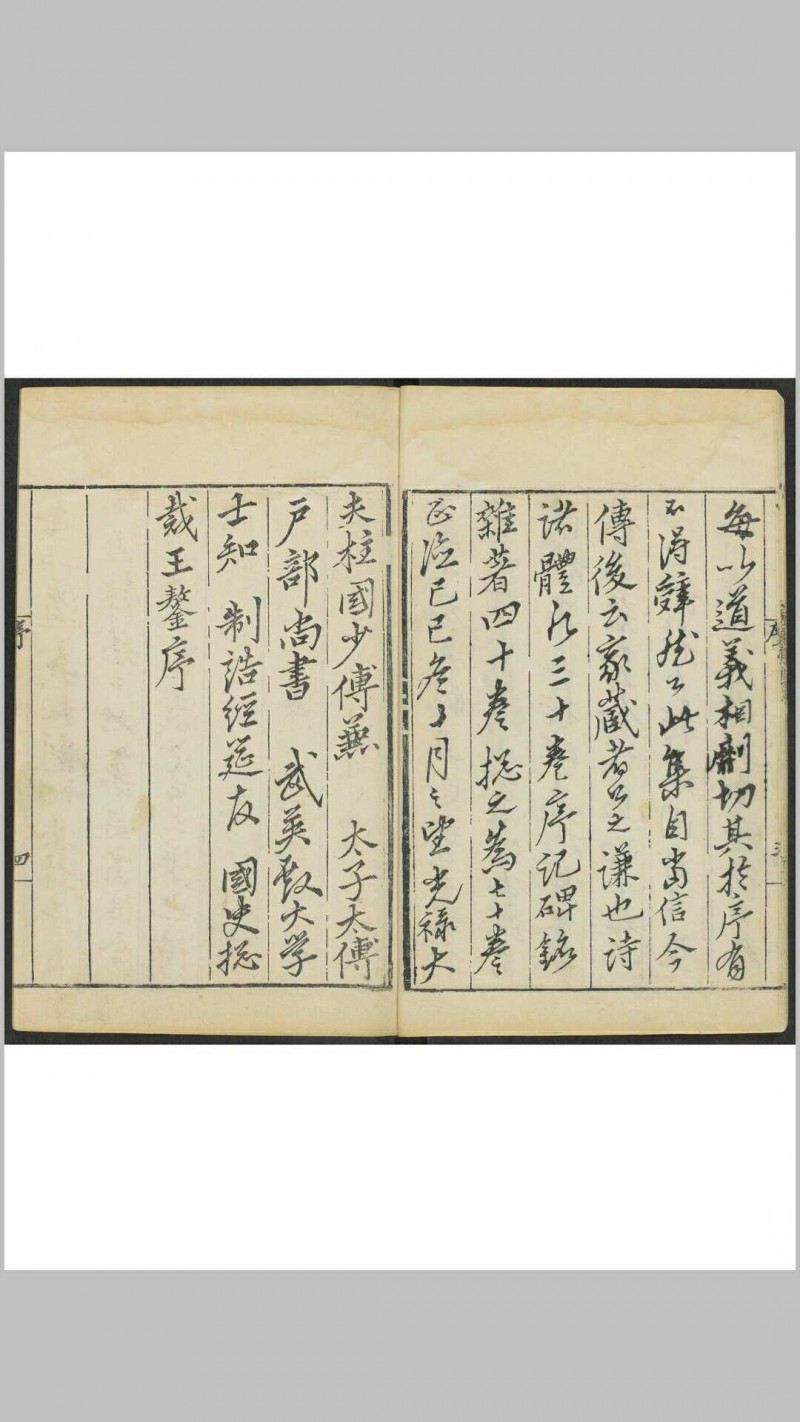 每以道義相劘切其於序有
不得辭然公此集自當信今
傳後云家藏者公之謙也詩
諸體凡三十卷序記碑銘
雜著四十卷捴之為七十卷
正德己巳冬十月之望光祿大
序
三
夫柱國少傅兼　太子太傅
戶部尚書　武英殿大学
士知　制誥經筵官　國史捴
裁王鏊序
序
四